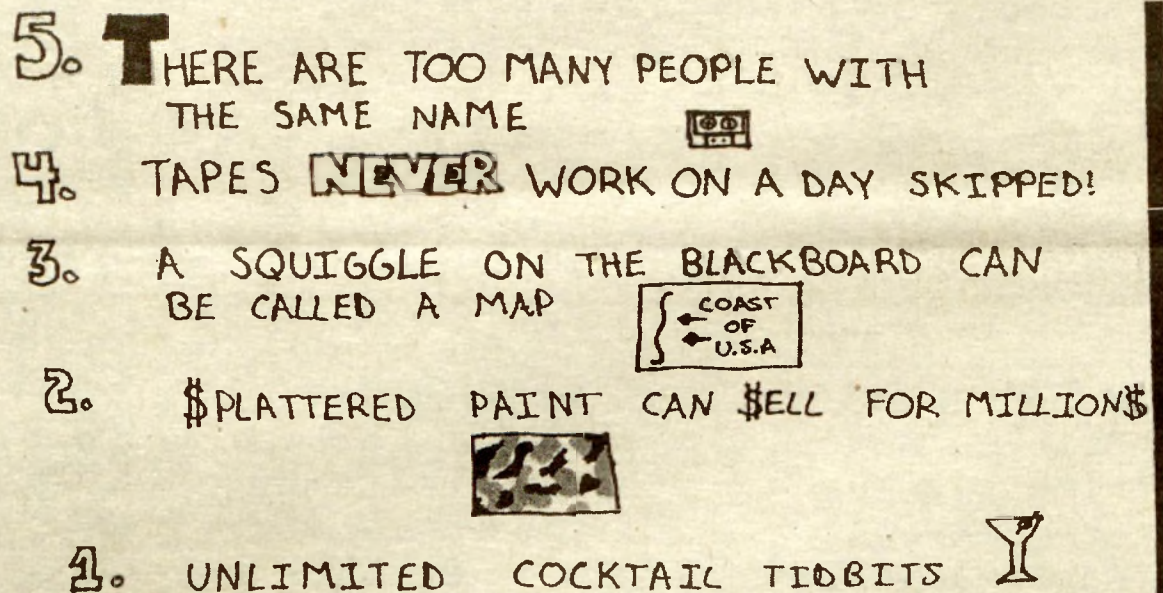 5. THERE ARE TOO MANY PEOPLE WITH
THE SAME NAME
4. TAPES NEVER WORK ON A DAY SKIPPED!
3. A SQUIGGLE ON THE BLACKBOARD CAN
BE CALLED A MAP
COAST
OF
U.S.A
2. $PLATTERED PAINT CAN $ELL FOR MILLION$
1. UNLIMITED COCKTAIL TIDBITS